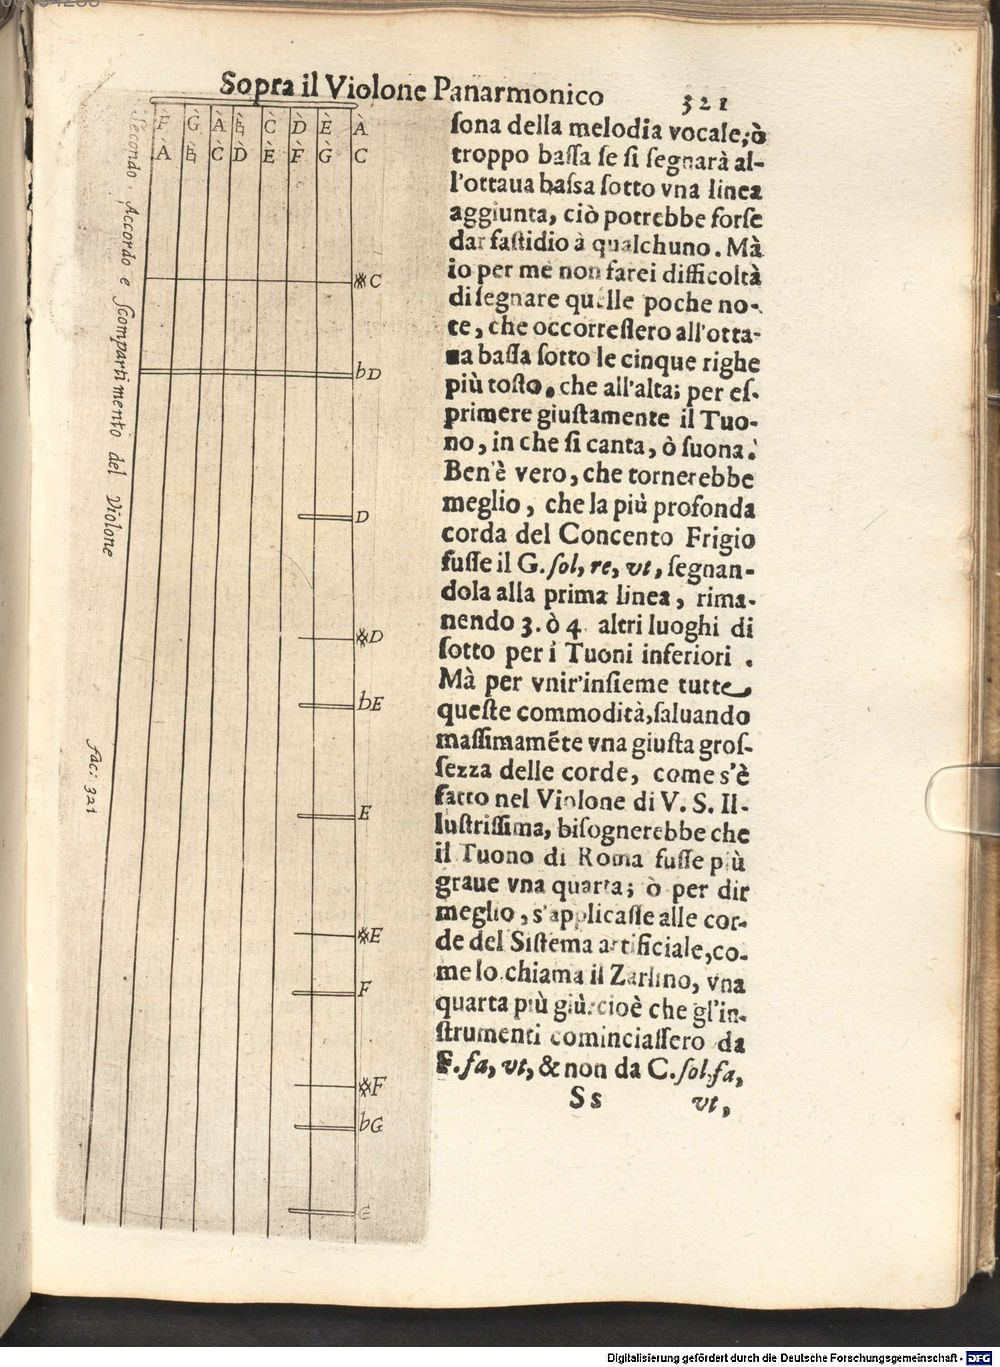 Sopra il Violone Panarmonico 321
G A ♮ C D E A
A ♮ C D E F G C
Secondo. Accordo e Scompartimento del Violone
fac: 321
※C
bD
D
※D
bE
E
※E
F
※F
bG
G
ſona della melodia vocale; ò
troppo baſſa ſe ſi ſegnarà al-
l'ottaua baſsa ſotto vna linea
aggiunta, ciò potrebbe forſe
dar faſtidio à qualchuno. Mà
io per me non farei difficoltà
di ſegnare quelle poche no-
te, che occorreſſero all'otta-
ua baſſa ſotto le cinque righe
più toſto, che all'alta; per eſ-
primere giuſtamente il Tuo-
no, in che ſi canta, ò ſuona.
Ben'è vero, che tornerebbe
meglio, che la più profonda
corda del Concento Frigio
fuſſe il G. ſol, re, vt, ſegnan-
dola alla prima linea, rima-
nendo 3. ò 4. altri luoghi di
ſotto per i Tuoni inferiori.
Mà per vnir'inſieme tutte
queſte commodità, ſaluando
maſſimamẽte vna giuſta groſ-
ſezza delle corde, come s'è
fatto nel Violone di V. S. Il-
luſtriſſima, biſognerebbe che
il Tuono di Roma fuſſe più
graue vna quarta; ò per dir
meglio, s'applicaſſe alle cor-
de del Siſtema artificiale, co-
me lo chiama il Zarlino, vna
quarta più giù: cioè che gl'in-
ſtrumenti cominciaſſero da
F. fa, vt, & non da C. ſol, fa,
Ss vt,
Digitalisierung gefördert durch die Deutsche Forschungsgemeinschaft - DFG